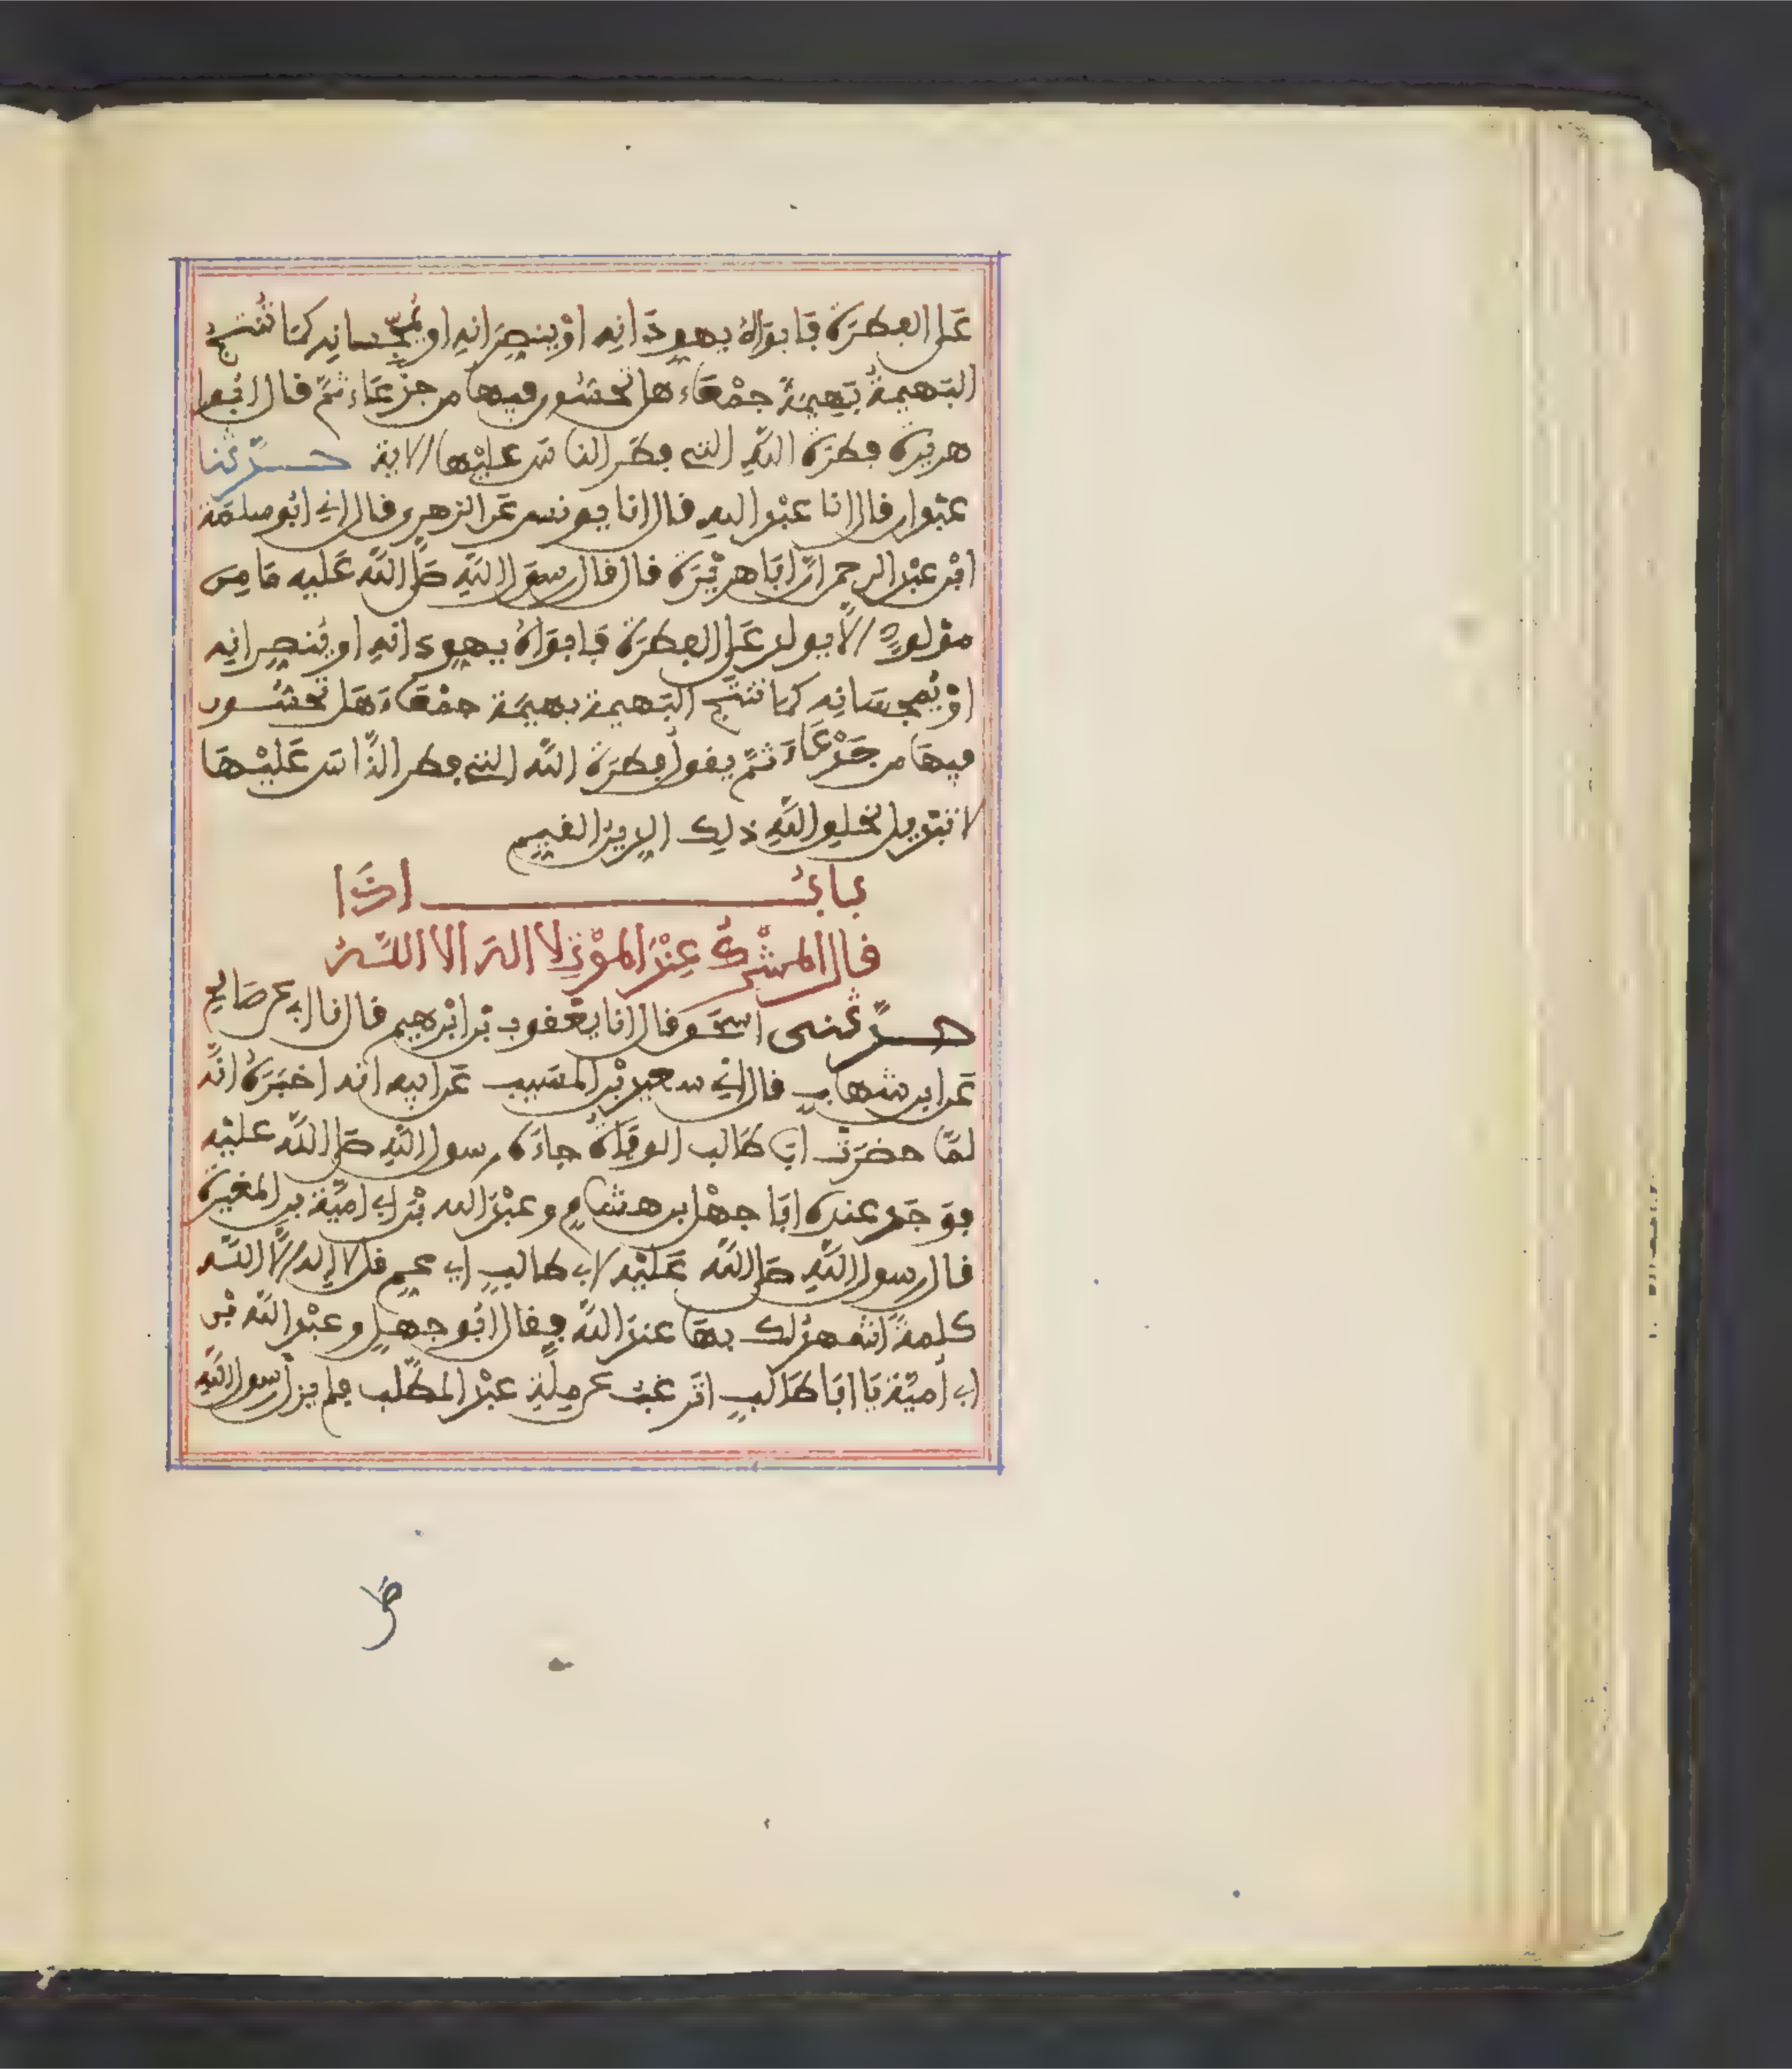 عَلى الفِطرَةِ فَابَوَاهُ يهودَانِهِ اوْ ينصِرَانِهِ او يُمجّسانِهِ كمَا تُنتَجُ
البَهيمَةُ بَهِيمَةً جمْعَاء هل تحسّون فيها من جدْعَاء ثمّ قال ابُو
هريرة فطرَة اللّهِ التي فطَر الناسَ عليْها الاية حــدّثنا
عبْدان قال انا عبْد اللهِ قال انا يونس عَن الزهرِي قال اني ابُو سلمَة
ابْن عبْد الرحمن انّ ابَا هريْرَة قال قال رسول اللّهِ صَلى اللّه عَليه مَا مِن
موْلودٍ الّا يولد عَلى الفِطرَةِ فَابوَاهُ يهودانِهِ او يُنصرانِهِ
اوْ يُمجسَانِه كما تنتَج البَهيمة بهيمَة جمْعَاءَ هَل تحسّــون
فيهَا من جَدْعَاءَ ثمّ يقول فِطرَة اللّه التي فطر النّاسَ عَليْهَا
لا تبْديل لخلق اللّهِ ذلِك الدين القيِّم
بابُ اذَا
قال المشْرِكُ عِنْدَ الموْتِ لا اله الا اللّهُ
حــدّثنى اسحَق قال انا يعْقوب بْن ابْرهيم قال نا ابي عن صَالح
عَن ابن شهابٍ قال اني سعيد بْن المسَيب عَن ابيه انه اخبَرَهُ انّه
لمّا حضَرَتْ ابَا طَالب الوفَاةُ جاءَه رسول اللّهِ صَلى اللّه عليْه
فوَجَد عندَه ابَا جهْل بن هشامٍ وعبْدَ الله بْن ابي اميّة بن المغيرَة
قال رسول اللّهِ صَلى اللّه عَليْه لابي طالبٍ اي عمِّ قل لا اله الّا اللّه
كلمةً اشهد لك بهَا عندَ اللّه فقال ابُو جهل وعبْد اللّه بْن
ابي أميّة يَا ابَا طَالبٍ اتَرغبُ عن مِلّةِ عبْد المطّلب فلم يزل رسول اللّهِ